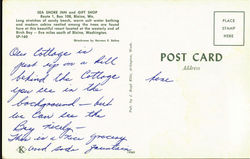 SEA SHORE INN and GIFT SHOP
Route 1, Box 108, Blaine, Wn.
Long stretches of sandy beach, warm salt water bathing
and modern cabins nestled among the trees are found
here at this beautiful resort located at the westerly end of
Birch Bay — five miles south of Blaine, Washington.
SP-160
PLACE
STAMP
HERE
POST CARD
Address
Our Cottage is
just up on a hill
behind the Cottage
you see in the
background — but
we can see the
Bay nicely —
This is a nice grocery
and soda fountain